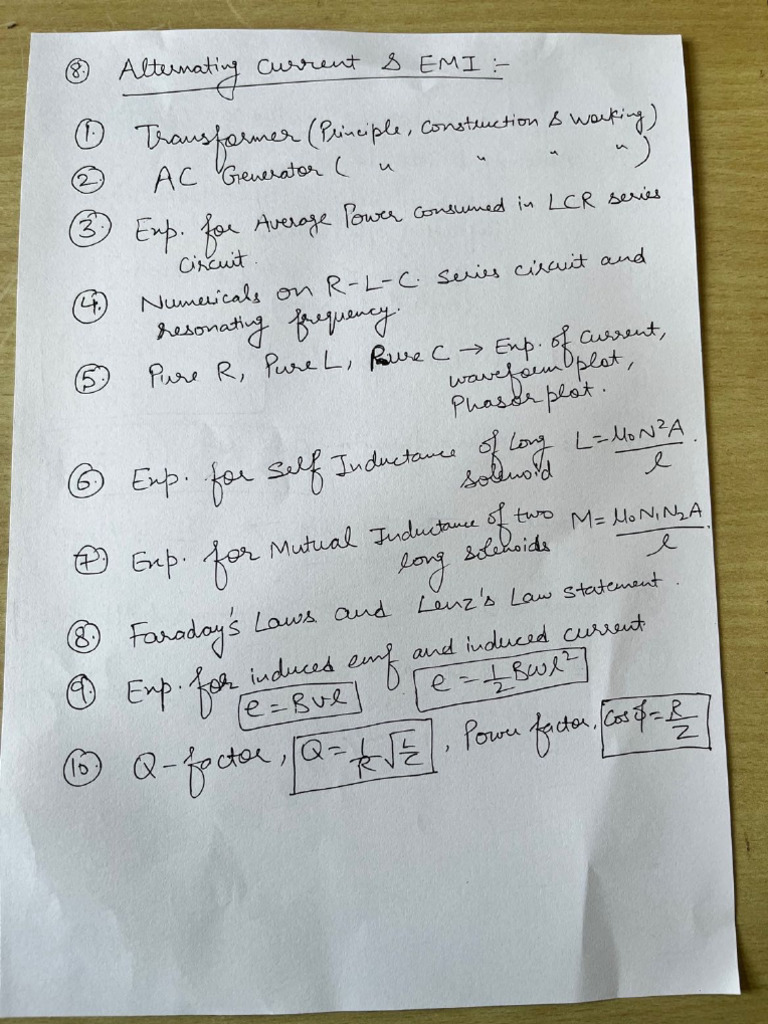 ⑧. Alternating Current & EMI :-
①. Transformer (Principle, Construction & Working)
②. AC Generator ( " " " " )
③. Exp. for Average Power consumed in LCR series
circuit.
④. Numericals on R-L-C. series circuit and
resonating frequency.
⑤. Pure R, Pure L, Pure C → Exp. of current,
waveform plot,
Phasor plot.
⑥. Exp. for Self Inductance of long solenoid L = μ₀N²A/l.
⑦. Exp. for Mutual Inductance of two long solenoids M = μ₀N₁N₂A/l.
⑧. Faraday's Laws and Lenz's Law statement.
⑨. Exp. for induces emf and induced current
e = Bvl e = 1/2 Bωl²
⑩. Q-factor, Q = 1/R √L/C, Power factor, Cos φ = R/Z